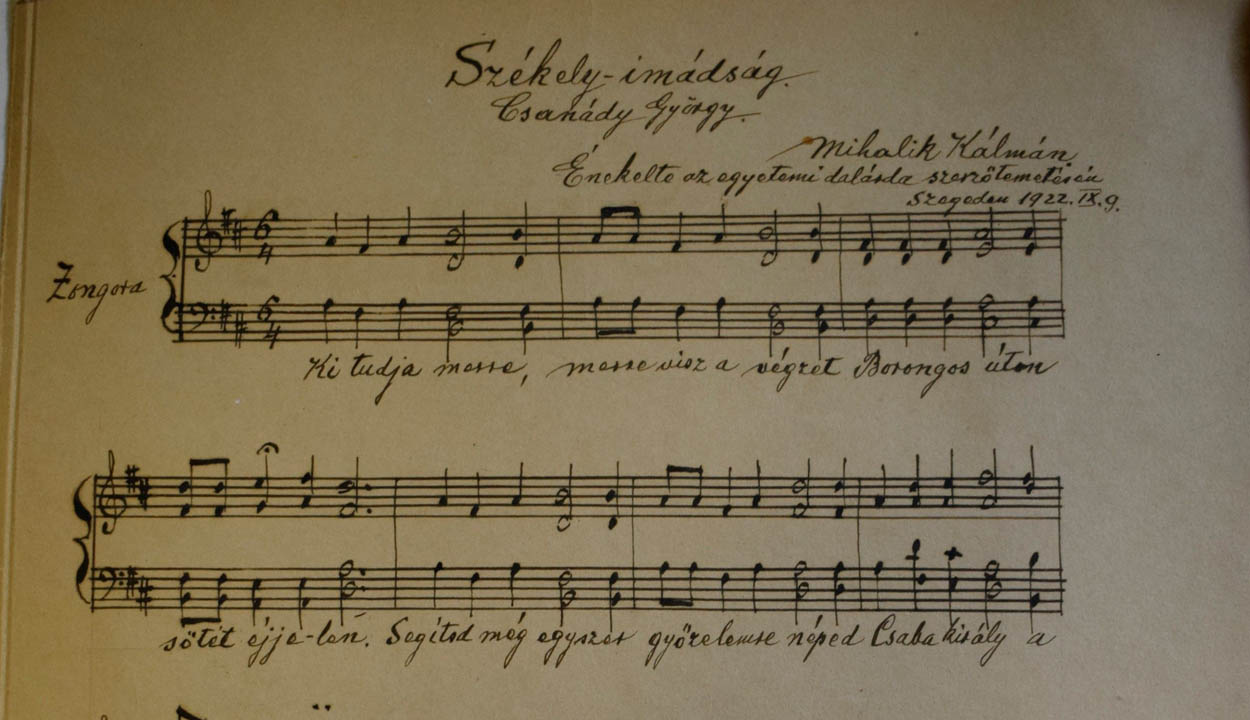 Székely-imádság.
Csanády György.
Mihalik Kálmán
Énekelte az egyetemi dalárda szerzőtemetésén
Szegeden 1922. IX. 9.
6 6
4 4
Zongora
Ki tudja merre, merre visz a végzet Borongos úton
sötét éjje-len. Segítsd még egyszer győzelemre néped Csaba király a